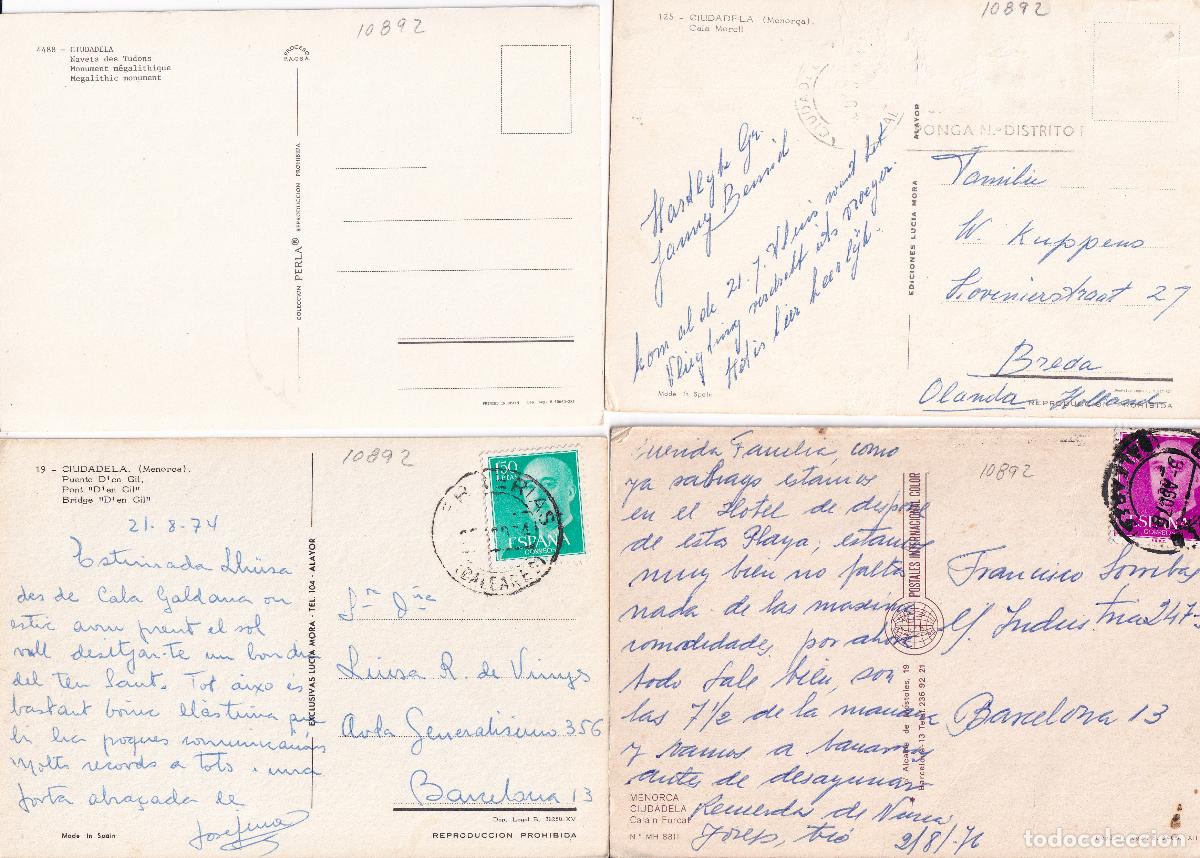 10892
4488 - CIUDADELA
Naveta des Tudons
Monument mégalithique
Megalithic monument
PROCESO
COLECCION PERLA® REPRODUCCION PROHIBIDA
PRINTED IN SPAIN
10892
125 - CIUDADELA (Menorca).
Cala Morell
CIUDADELA
PONGA N.º DISTRITO
Hartelijke Gr.
Janny
kom al de 21-7. thuis want het
vroeger.
Het is hier heerlijk.
Made in Spain
EDICIONES LUCIA MORA ALAYOR
Familie
W. Kuppens
Hovenierstraat 27
Breda
Olanda Holland
REPRODUCCION PROHIBIDA
10892
19 - CIUDADELA. (Menorca).
Puente D'en Gil,
Pont "D'en Gil"
Bridge "D'en Gil"
21-8-74
Estimada Lluisa
des de Cala Galdana on
estic avui prenent el sol
vull desitjar-te un bon dia
del teu Sant. Tot aixo és
bastant bonic llástima que
hi ha poques comunicacións
Molts records a tots i una
forta abraçada de
Josefina
Made in Spain
EXCLUSIVAS LUCIA MORA - TEL. 104 - ALAYOR
150
PTAS
ESPAÑA
CORREOS
FERRERIAS
(BALEARES)
Sra Dña
Luisa R. de Vinyes
Avda Generalisimo 356
Barcelona 13
REPRODUCCION PROHIBIDA
10892
Querida Familia, como
ya sabrais estamos
en el Hotel de
de esta Playa, estamos
muy bien no falta
nada de las maximas
comodidades, por ahora
todo sale bien, son
las 7½ de la manana
y vamos a banarnos
antes de desayunar
Josep,
2/8/76
MENORCA
CIUDADELA
Cala'n Forcat
N.º MH 8811
POSTALES INTERNACIONAL COLOR
Alcalde de Móstoles, 19
Barcelona-13 Telf. 236 92 21
ESPAÑA
CORREOS
Francisco
C/. Industria 247-
Barcelona 13
todocoleccion.net